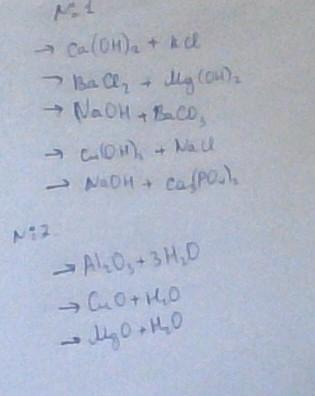 №1
→ Ca(OH)₂ + KCl
→ BaCl₂ + Mg(OH)₂
→ NaOH + BaCO₃
→ Cu(OH)₂ + NaCl
→ NaOH + Ca₃(PO₄)₂
№2
→ Al₂O₃ + 3H₂O
→ CuO + H₂O
→ MgO + H₂O